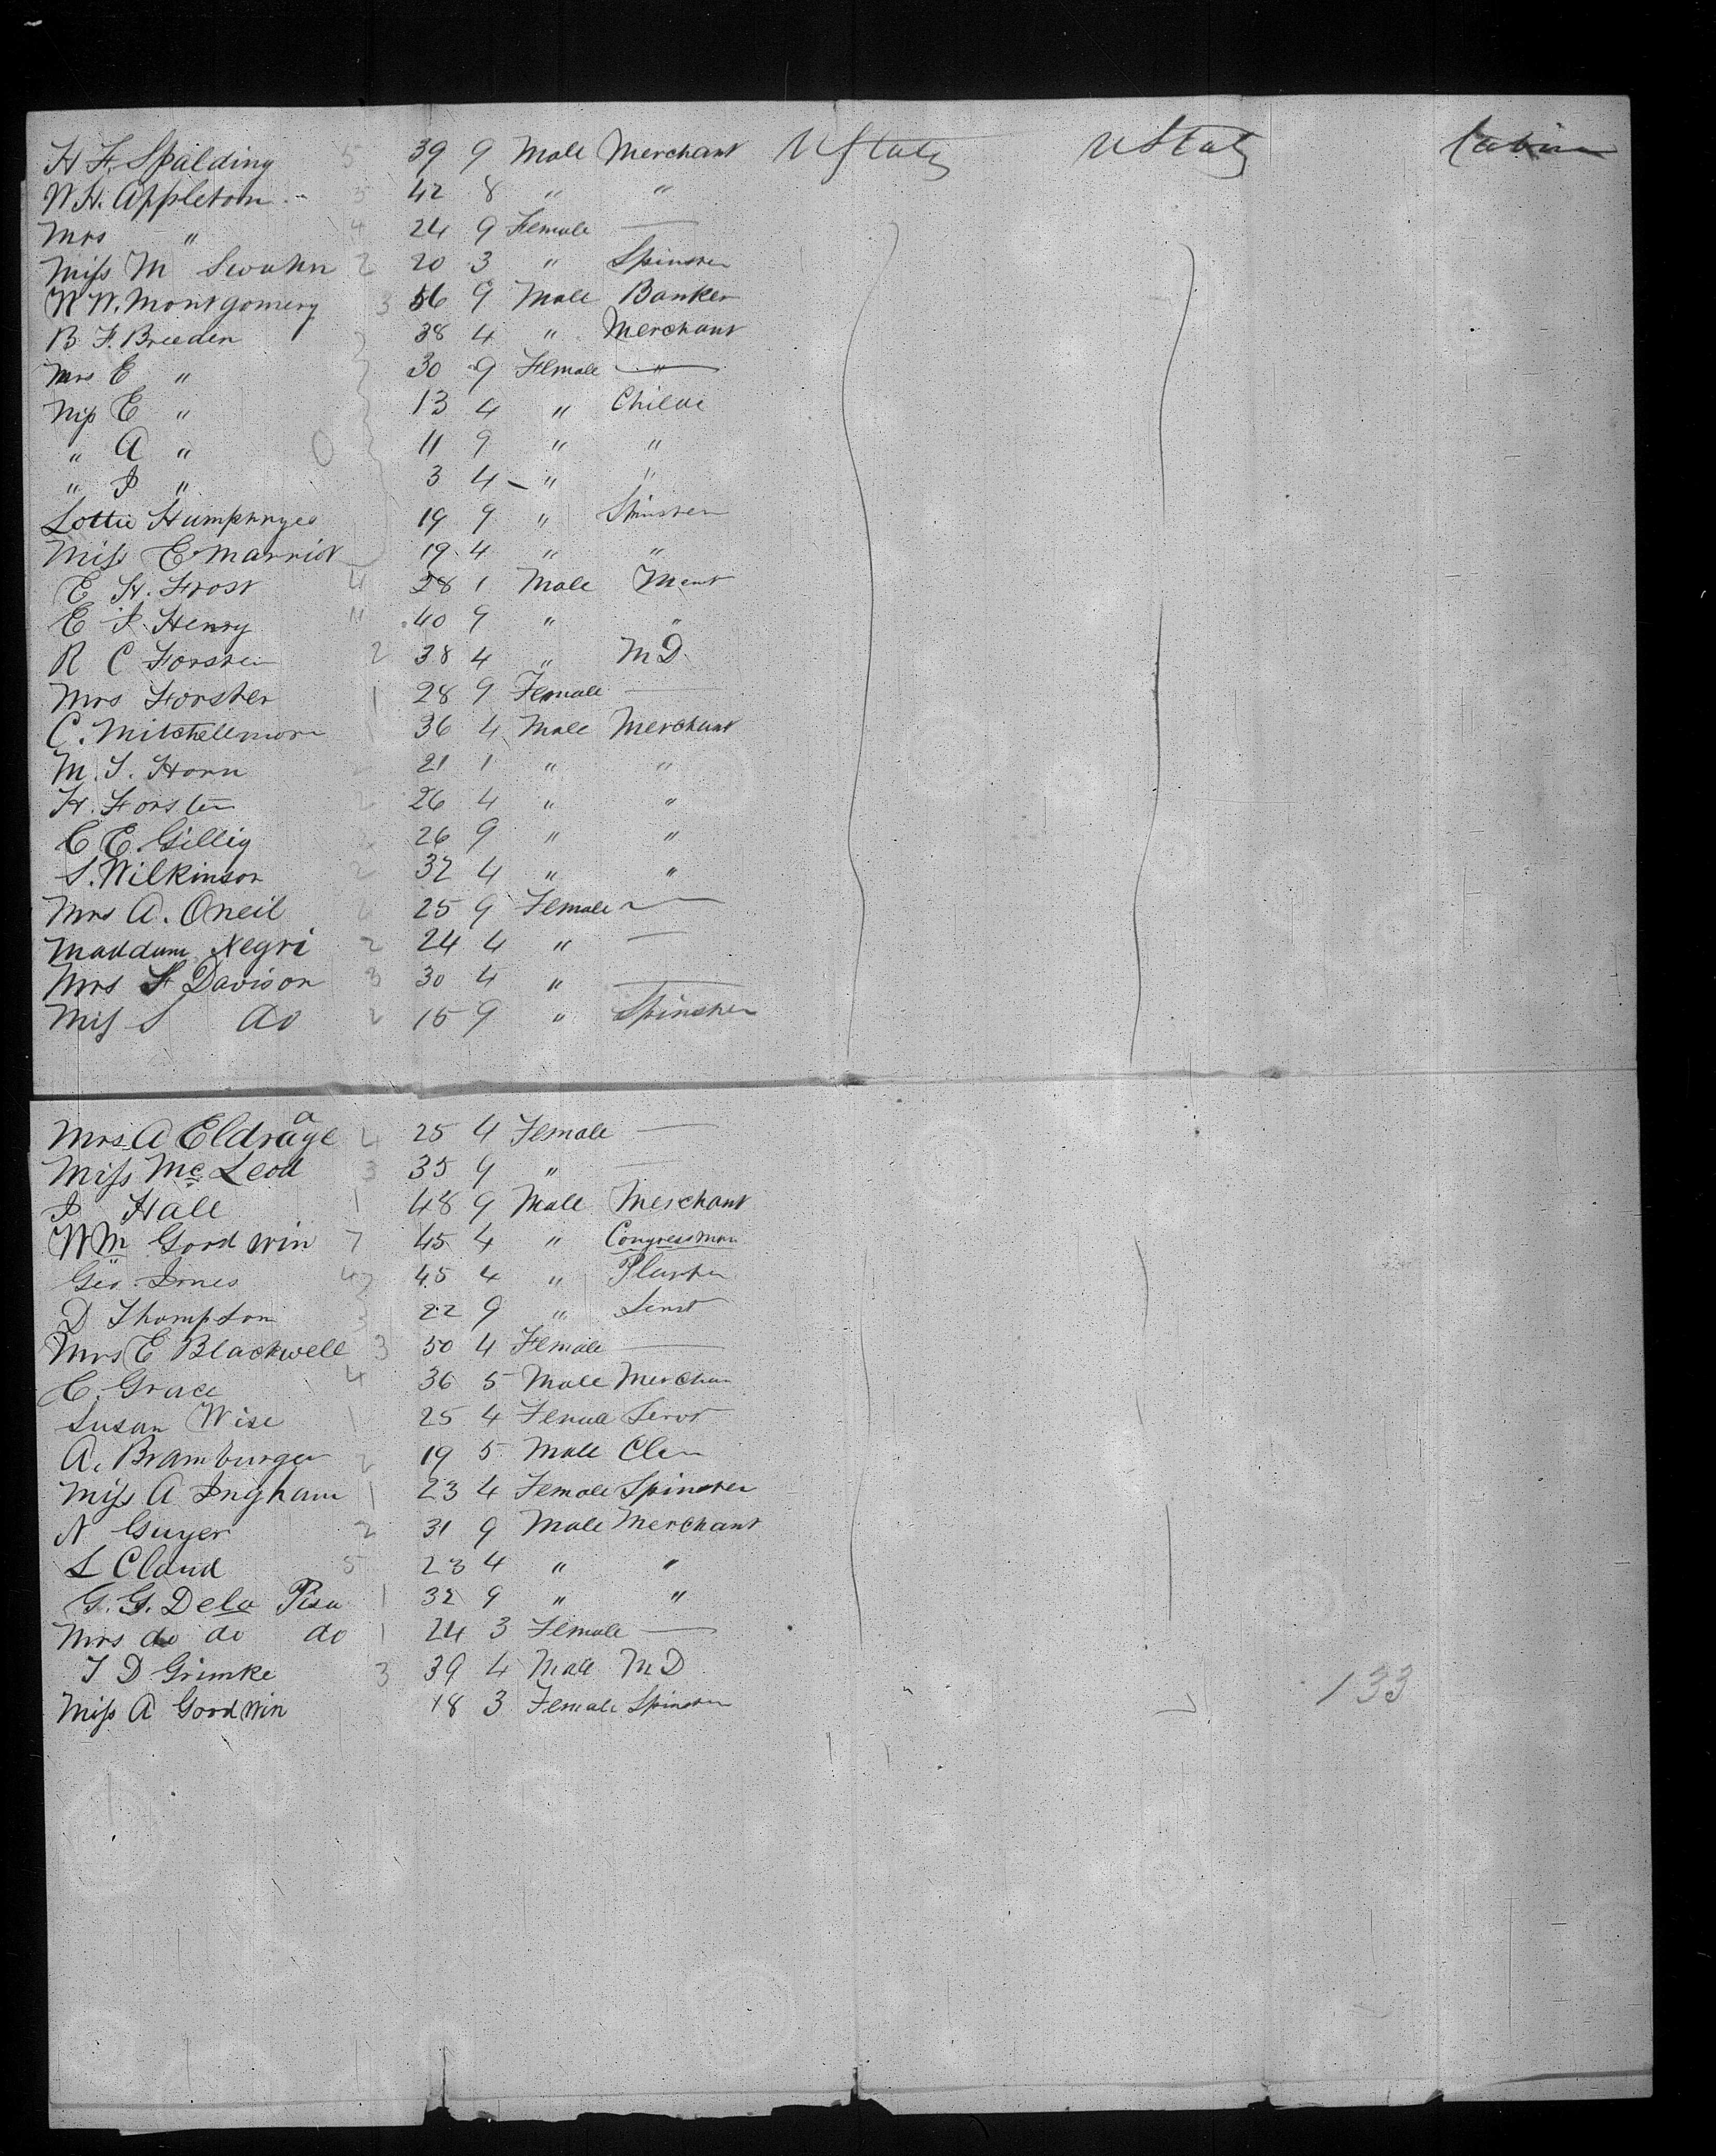 H F. Spalding 5 39 9 Male Merchant U States U States Cabin
W H. Appleton 3 42 8 " "
Mrs " 4 24 9 Female —
Miss M Swahn 2 20 3 " Spinster
W W. Montgomery 3 56 9 Male Banker
B. F. Breeden 38 4 " Merchant
Mrs E " 30 9 Female "
Miss E " 13 4 " Child
" A " 11 9 " "
" I " 3 4 " "
Lottie Humphryes 19 9 " Spinster
Miss E Marriot 19 4 " "
E H. Frost 4 28 1 Male Ment
E I. Henry 11 40 9 " "
R C Forster 2 38 4 " M D.
Mrs Forster 1 28 9 Female —
C. Mitchellmore 1 36 4 Male Merchant
M. S. Horn 21 1 " "
H. Forster 2 26 4 " "
C E. Gillig 26 9 " "
S. Wilkinson 2 32 4 " "
Mrs A. Oneil 6 25 9 Female —
Maddam Negri 2 24 4 " —
Mrs F Davison 3 30 4 " —
Miss S do 2 15 9 " Spinster
Mrs A Eldrage 4 25 4 Female —
Miss Mc Leod 3 35 9 " —
I Hale 1 48 9 Male Merchant
Wm Goodwin 7 45 4 " Congressman
Geo. Jones 42 45 4 "
D Thompson 3 22 9 " Servt
Mrs E Blackwell 3 50 4 Female —
C. Grace 4 36 5 Male Merchan
Susan Wise 1 25 4 Female Servt
A. Bramburger 2 19 5 Male
Miss A Ingham 1 23 4 Female Spinster
N Guyer 2 31 9 Male Merchant
L Cland 5 23 4 " "
G. G. Dela Pisa 1 32 9 " "
Mrs do do do 1 24 3 Female —
T D Grimke 3 39 4 Male M D
Miss A Goodwin 18 3 Female Spinster
133